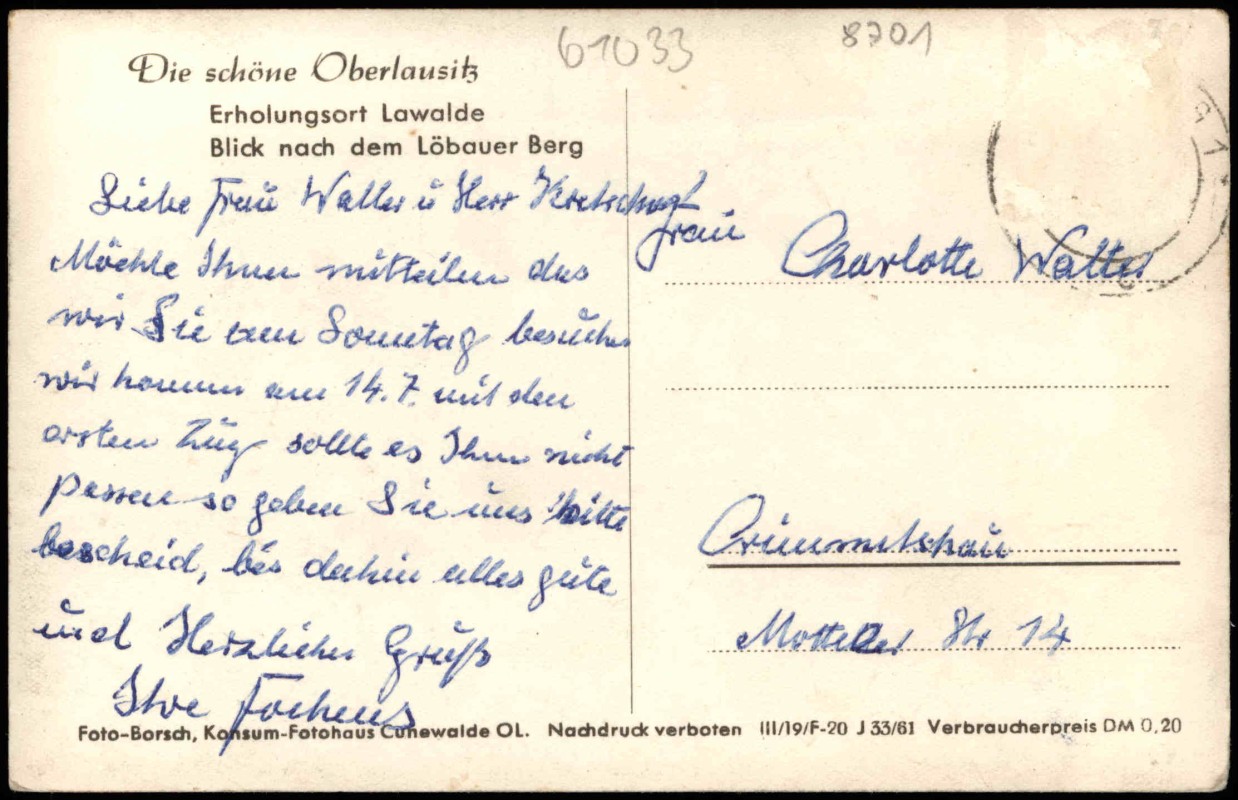 61033
8701
Die schöne Oberlausitz
Erholungsort Lawalde
Blick nach dem Löbauer Berg
Liebe Frau Walter u Herr
Möchte Ihnen mitteilen das
wir Sie am Sonntag besuchen
wir kommen am 14.7. mit den
ersten Zug sollte es Ihnen nicht
passen so geben Sie uns bitte
bescheid, bis dahin alles gute
und Herzlicher Gruß
Ihre
Frau
Charlotte Walter
Crimmitschau
Str 14
Foto-Borsch, Konsum-Fotohaus Cunewalde OL. Nachdruck verboten III/19/F-20 J 33/61 Verbraucherpreis DM 0,20